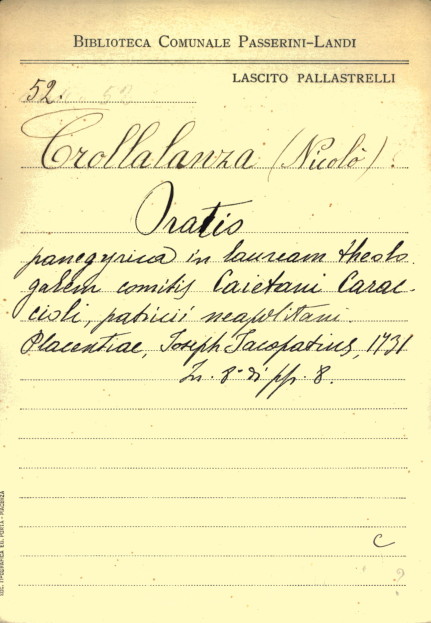 BIBLIOTECA COMUNALE PASSERINI-LANDI
LASCITO PALLASTRELLI
52.
Crollalanza (Nicolò).
Oratio
panegyrica in lauream theolo
galem comitis Caietani Carac-
cioli, patricii neapolitani.
Placentiae, Joseph Jacopatius, 1731
In 8° di pp. 8.
C